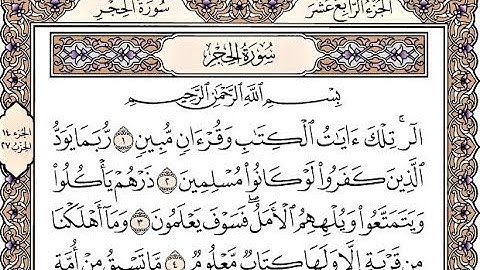 سُورَةُ الحِجْرِ
الجُزْءُ الرَّابِعَ عَشَرَ
سُورَةُ الحِجْرِ
بِسْمِ اللَّهِ الرَّحْمَٰنِ الرَّحِيمِ
الٓرۚ تِلْكَ ءَايَٰتُ ٱلْكِتَٰبِ وَقُرْءَانٍ مُّبِينٍ ١ رُّبَمَا يَوَدُّ
ٱلَّذِينَ كَفَرُوا۟ لَوْ كَانُوا۟ مُسْلِمِينَ ٢ ذَرْهُمْ يَأْكُلُوا۟
وَيَتَمَتَّعُوا۟ وَيُلْهِهِمُ ٱلْأَمَلُۖ فَسَوْفَ يَعْلَمُونَ ٣ وَمَآ أَهْلَكْنَا
مِن قَرْيَةٍ إِلَّا وَلَهَا كِتَابٌ مَّعْلُومٌ ٤ مَّا تَسْبِقُ مِنْ أُمَّةٍ
الجزء ١٤
الحزب ٢٧